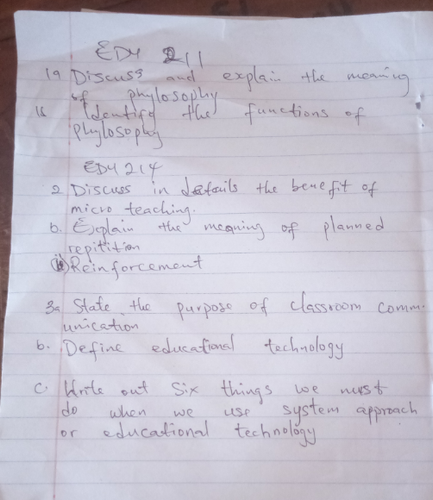 EDU 211
1a Discuss and explain the meaning
of phylosophy
1b Identify the functions of
phylosophy
EDU 214
2 Discuss in details the benefit of
micro teaching.
b. Explain the meaning of planned
repitition
(ii) Reinforcement
3a State the purpose of classroom comm-
unication
b. Define educational technology
c. Write out Six things we must
do when we use system approach
or educational technology